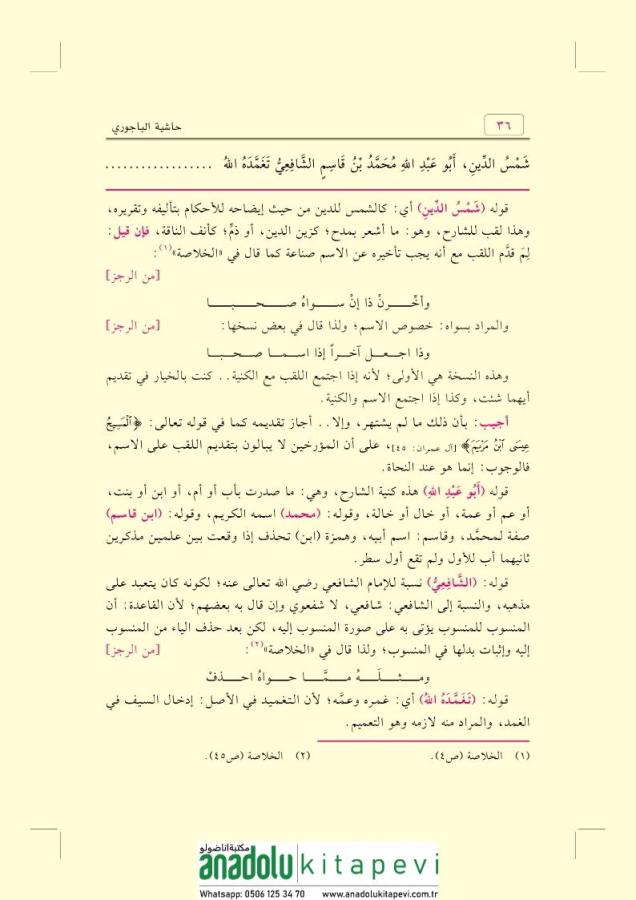 ٣٦
حاشية الباجوري
شَمْسُ الدِّينِ، أَبُو عَبْدِ اللهِ مُحَمَّدُ بْنُ قَاسِمٍ الشَّافِعِيُّ تَغَمَّدَهُ اللهُ ..................
قوله (شَمْسُ الدِّينِ) أي: كالشمس للدين من حيث إيضاحه للأحكام بتأليفه وتقريره،
وهذا لقب للشارح، وهو: ما أشعر بمدح؛ كزين الدين، أو ذمٍّ؛ كأنف الناقة، فإن قيل:
لِمَ قدَّم اللقب مع أنه يجب تأخيره عن الاسم صناعة كما قال في «الخلاصة»(١):
[من الرجز]
وأخِّـــرنْ ذا إنْ ســـواهُ صـــحـــبـــا
والمراد بسواه: خصوص الاسم؛ ولذا قال في بعض نسخها: [من الرجز]
وذا اجـعـــل آخـــراً إذا اسـمـــا صـــحـبـا
وهذه النسخة هي الأولى؛ لأنه إذا اجتمع اللقب مع الكنية.. كنت بالخيار في تقديم
أيهما شئت، وكذا إذا اجتمع الاسم والكنية.
أجيب: بأن ذلك ما لم يشتهر، وإلا.. أجاز تقديمه كما في قوله تعالى: ﴿ٱلْمَسِيحُ
عِيسَى ٱبْنُ مَرْيَمَ﴾ [آل عمران: ٤٥]، على أن المؤرخين لا يبالون بتقديم اللقب على الاسم،
فالوجوب: إنما هو عند النحاة.
قوله (أَبُو عَبْدِ اللهِ) هذه كنية الشارح، وهي: ما صدرت بأب أو أم، أو ابن أو بنت،
أو عم أو عمة، أو خال أو خالة، وقوله: (محمد) اسمه الكريم، وقوله: (ابن قاسم)
صفة لمحمَّد، وقاسم: اسم أبيه، وهمزة (ابن) تحذف إذا وقعت بين علمين مذكرين
ثانيهما أب للأول ولم تقع أول سطر.
قوله: (الشَّافِعِيُّ) نسبة للإمام الشافعي رضي الله تعالى عنه؛ لكونه كان يتعبد على
مذهبه، والنسبة إلى الشافعي: شافعي، لا شفعوي وإن قال به بعضهم؛ لأن القاعدة: أن
المنسوب للمنسوب يؤتى به على صورة المنسوب إليه، لكن بعد حذف الياء من المنسوب
إليه وإثبات بدلها في المنسوب؛ ولذا قال في «الخلاصة»(٢): [من الرجز]
ومـــثـلَـــهُ مـــمَّـــا حـــواهُ احـــذفْ
قوله: (تَغَمَّدَهُ اللهُ) أي: غمره وعمَّه؛ لأن التغميد في الأصل: إدخال السيف في
الغمد، والمراد منه لازمه وهو التعميم.
(١) الخلاصة (ص٤). (٢) الخلاصة (ص٤٥).
مكتبة اناضولو
anadolu kitapevi
Whatsapp: 0506 125 34 70 www.anadolukitapevi.com.tr